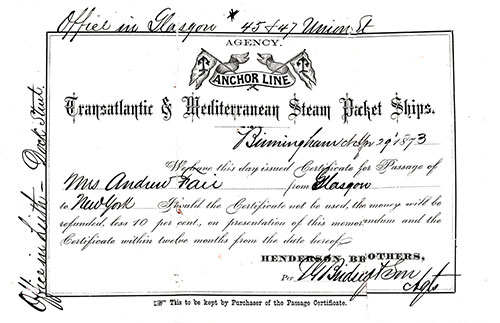 Office in Glasgow * 45 & 47 Union St
AGENCY.
ANCHOR LINE
Transatlantic & Mediterranean Steam Packet Ships.
Birmingham 29 1873
We have this day issued Certificate for Passage of
Mrs Andrew from Glasgow
to New York Should the Certificate not be used, the money will be
refunded, less 10 per cent., on presentation of this memorandum and the
Certificate within twelve months from the date hereof.
HENDERSON BROTHERS,
Per & Son
Agts
This to be kept by Purchaser of the Passage Certificate.
Office in Leith - Dock Street.